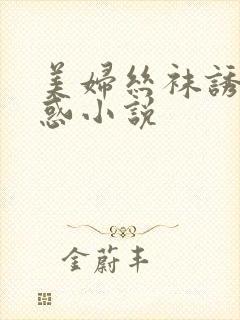 美婦絲袜誘
惑小説
金蔚丰